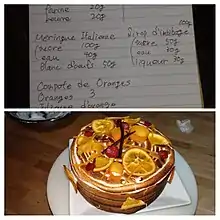 Farine 20g
beurre 20g
100g
Meringue Italienne Sirop d'imbibage
sucre 100g sucre 50g
eau 40g eau 50g
Blanc d'œufs 50g liqueur 30g
Compote de Oranges
Oranges 3